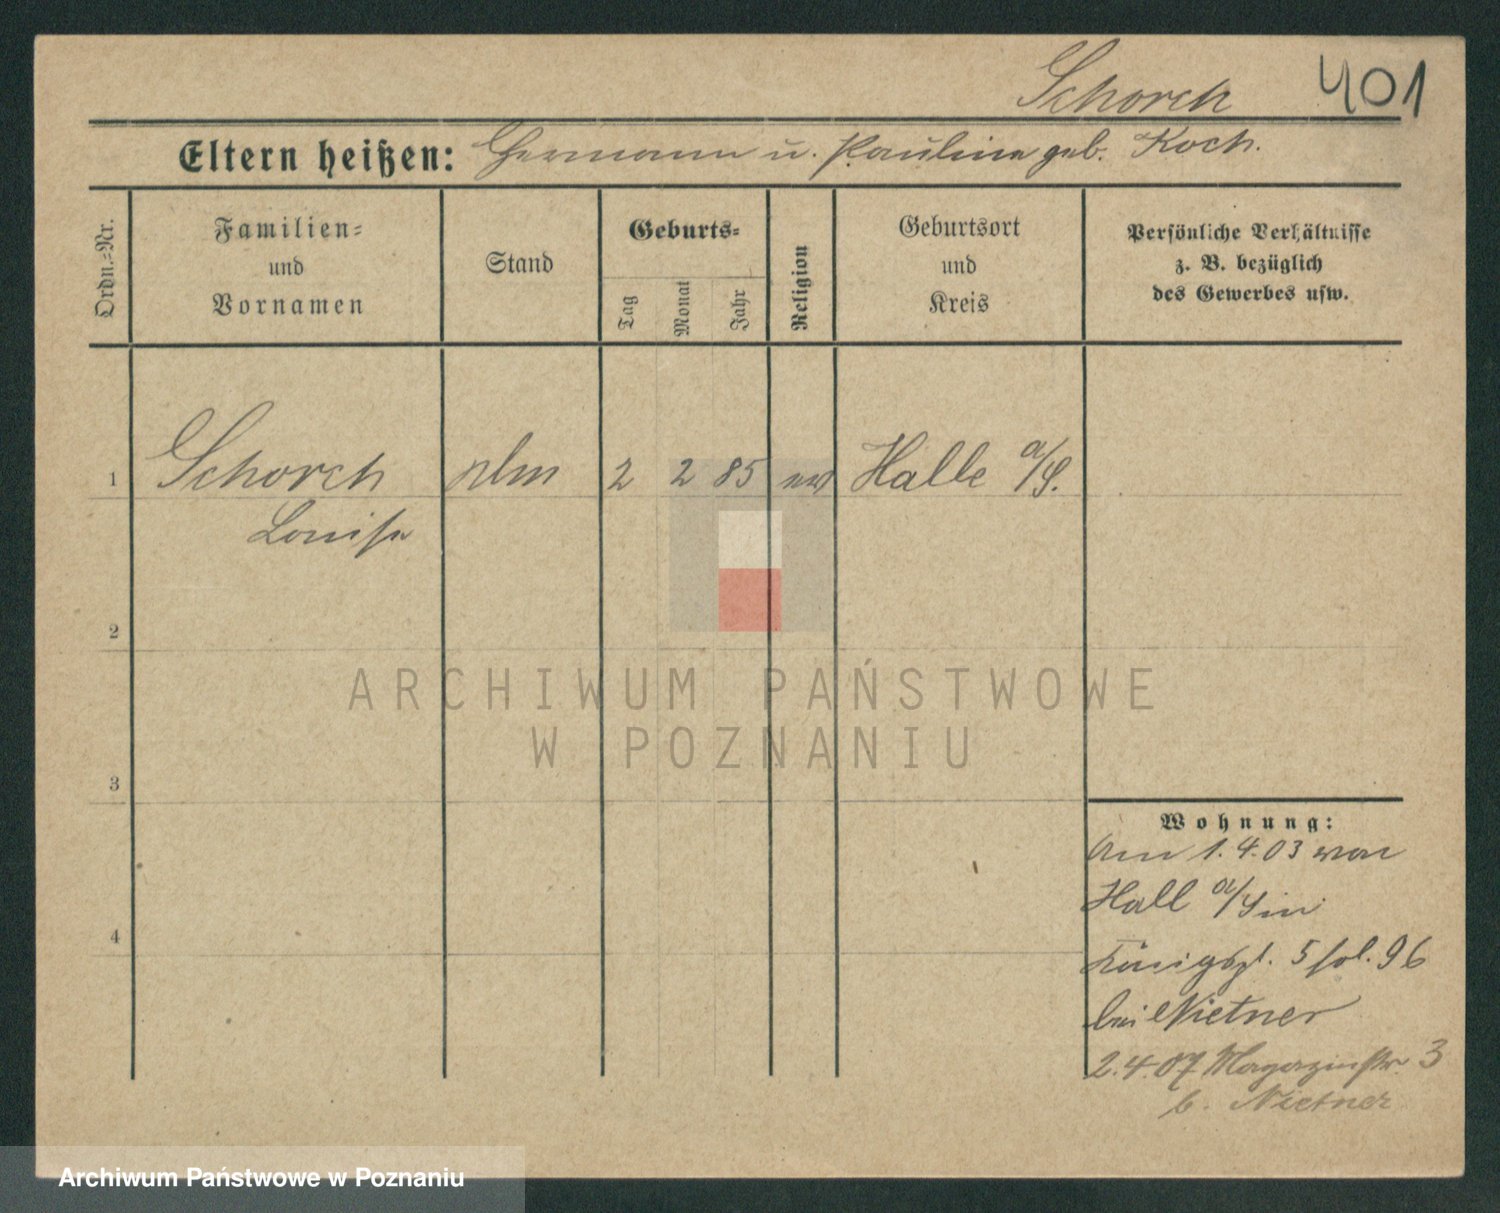 Schorch 401
Eltern heißen: Hermann u. Pauline geb. Koch.
Ordn.-Nr.
Familien- und Vornamen
Stand
Geburts-
Tag Monat Jahr
Religion
Geburtsort und Kreis
Persönliche Verhältnisse
z. B. bezüglich
des Gewerbes usw.
1 Schorch 2 2 85 ev Halle a/S.
Louise
2
ARCHIWUM PAŃSTWOWE
W POZNANIU
3
Wohnung:
Am 1.4.03 von
Hall a/S in
4
Königspl. 5 fol. 96
bei Nietner
2.4.07 Magazinstr. 3
b. Nietner
Archiwum Państwowe w Poznaniu